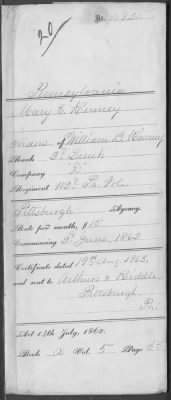 No.
20
Pennsylvania
Mary E. Kenney
Widow of William B. Kenney
Rank 2d Lieut
Company "D"
Regiment 102d Pa. Vols.
Pittsburgh Agency.
Rate per month, $15
Commencing 3d June, 1862
Certificate dated 19th Aug. 1863.
and sent to Arthurs & Riddle,
Pittsburgh
Pa.
Act 14th July, 1862.
Book A Vol. 5 Page 55